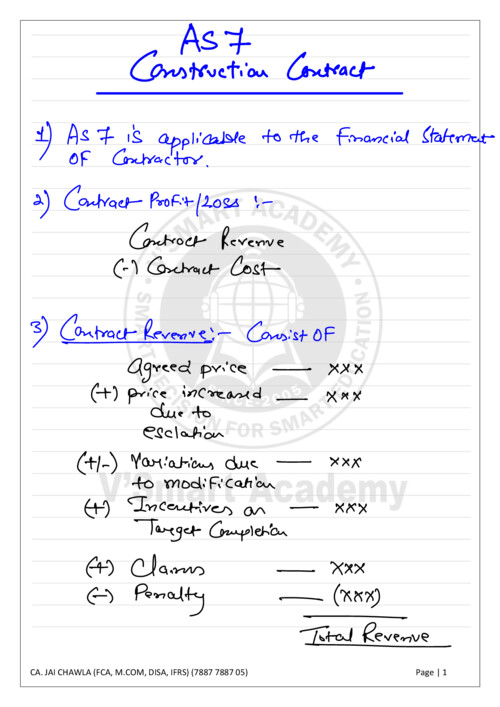 AS 7
Construction Contract
1) AS 7 is applicable to the Financial Statement
OF Contractor.
2) Contract Profit/Loss :-
Contract Revenue
(-) Contract Cost
3) Contract Revenue:- Consist OF
Agreed price — xxx
(+) price increased — xxx
due to
esclation
(+/-) Variations due — xxx
to modification
(+) Incentives on — xxx
Target Completion
(+) Claims — xxx
(-) Penalty — (xxx)
Total Revenue
V'SMART ACADEMY
SMART DECISION FOR SMART EDUCATION
V'Smart Academy
CA. JAI CHAWLA (FCA, M.COM, DISA, IFRS) (7887 7887 05) Page | 1